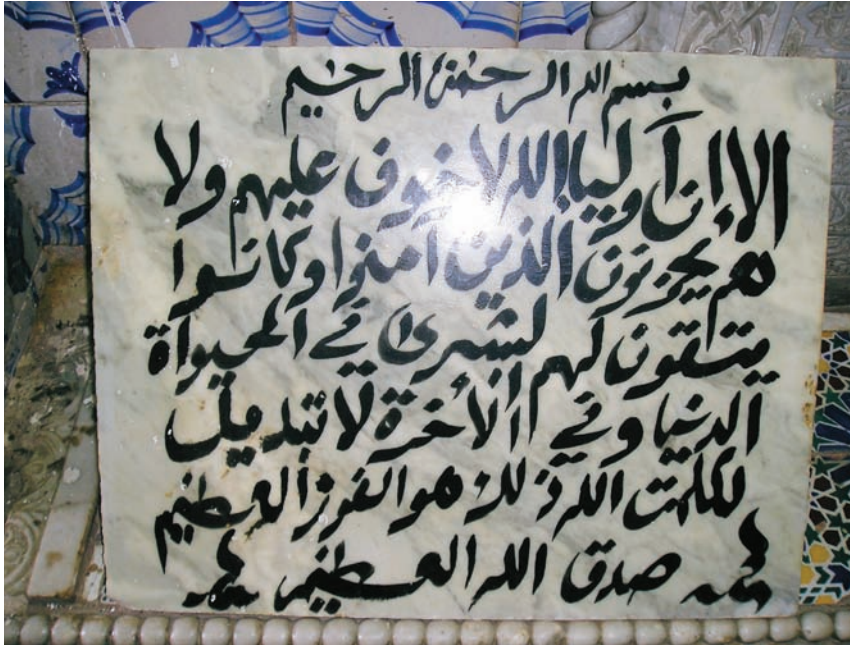 بسم الله الرحمٰن الرحيم
الا إن أوليا الله لا خوف عليهم ولا
هم يحزنون الذين آمنوا وكانوا
يتقون لهم البشرى في الحيواة
الدنيا وفي الأخرة لا تبديل
لكلمت الله ذلك هو الفوز العظيم
صدق الله العظيم